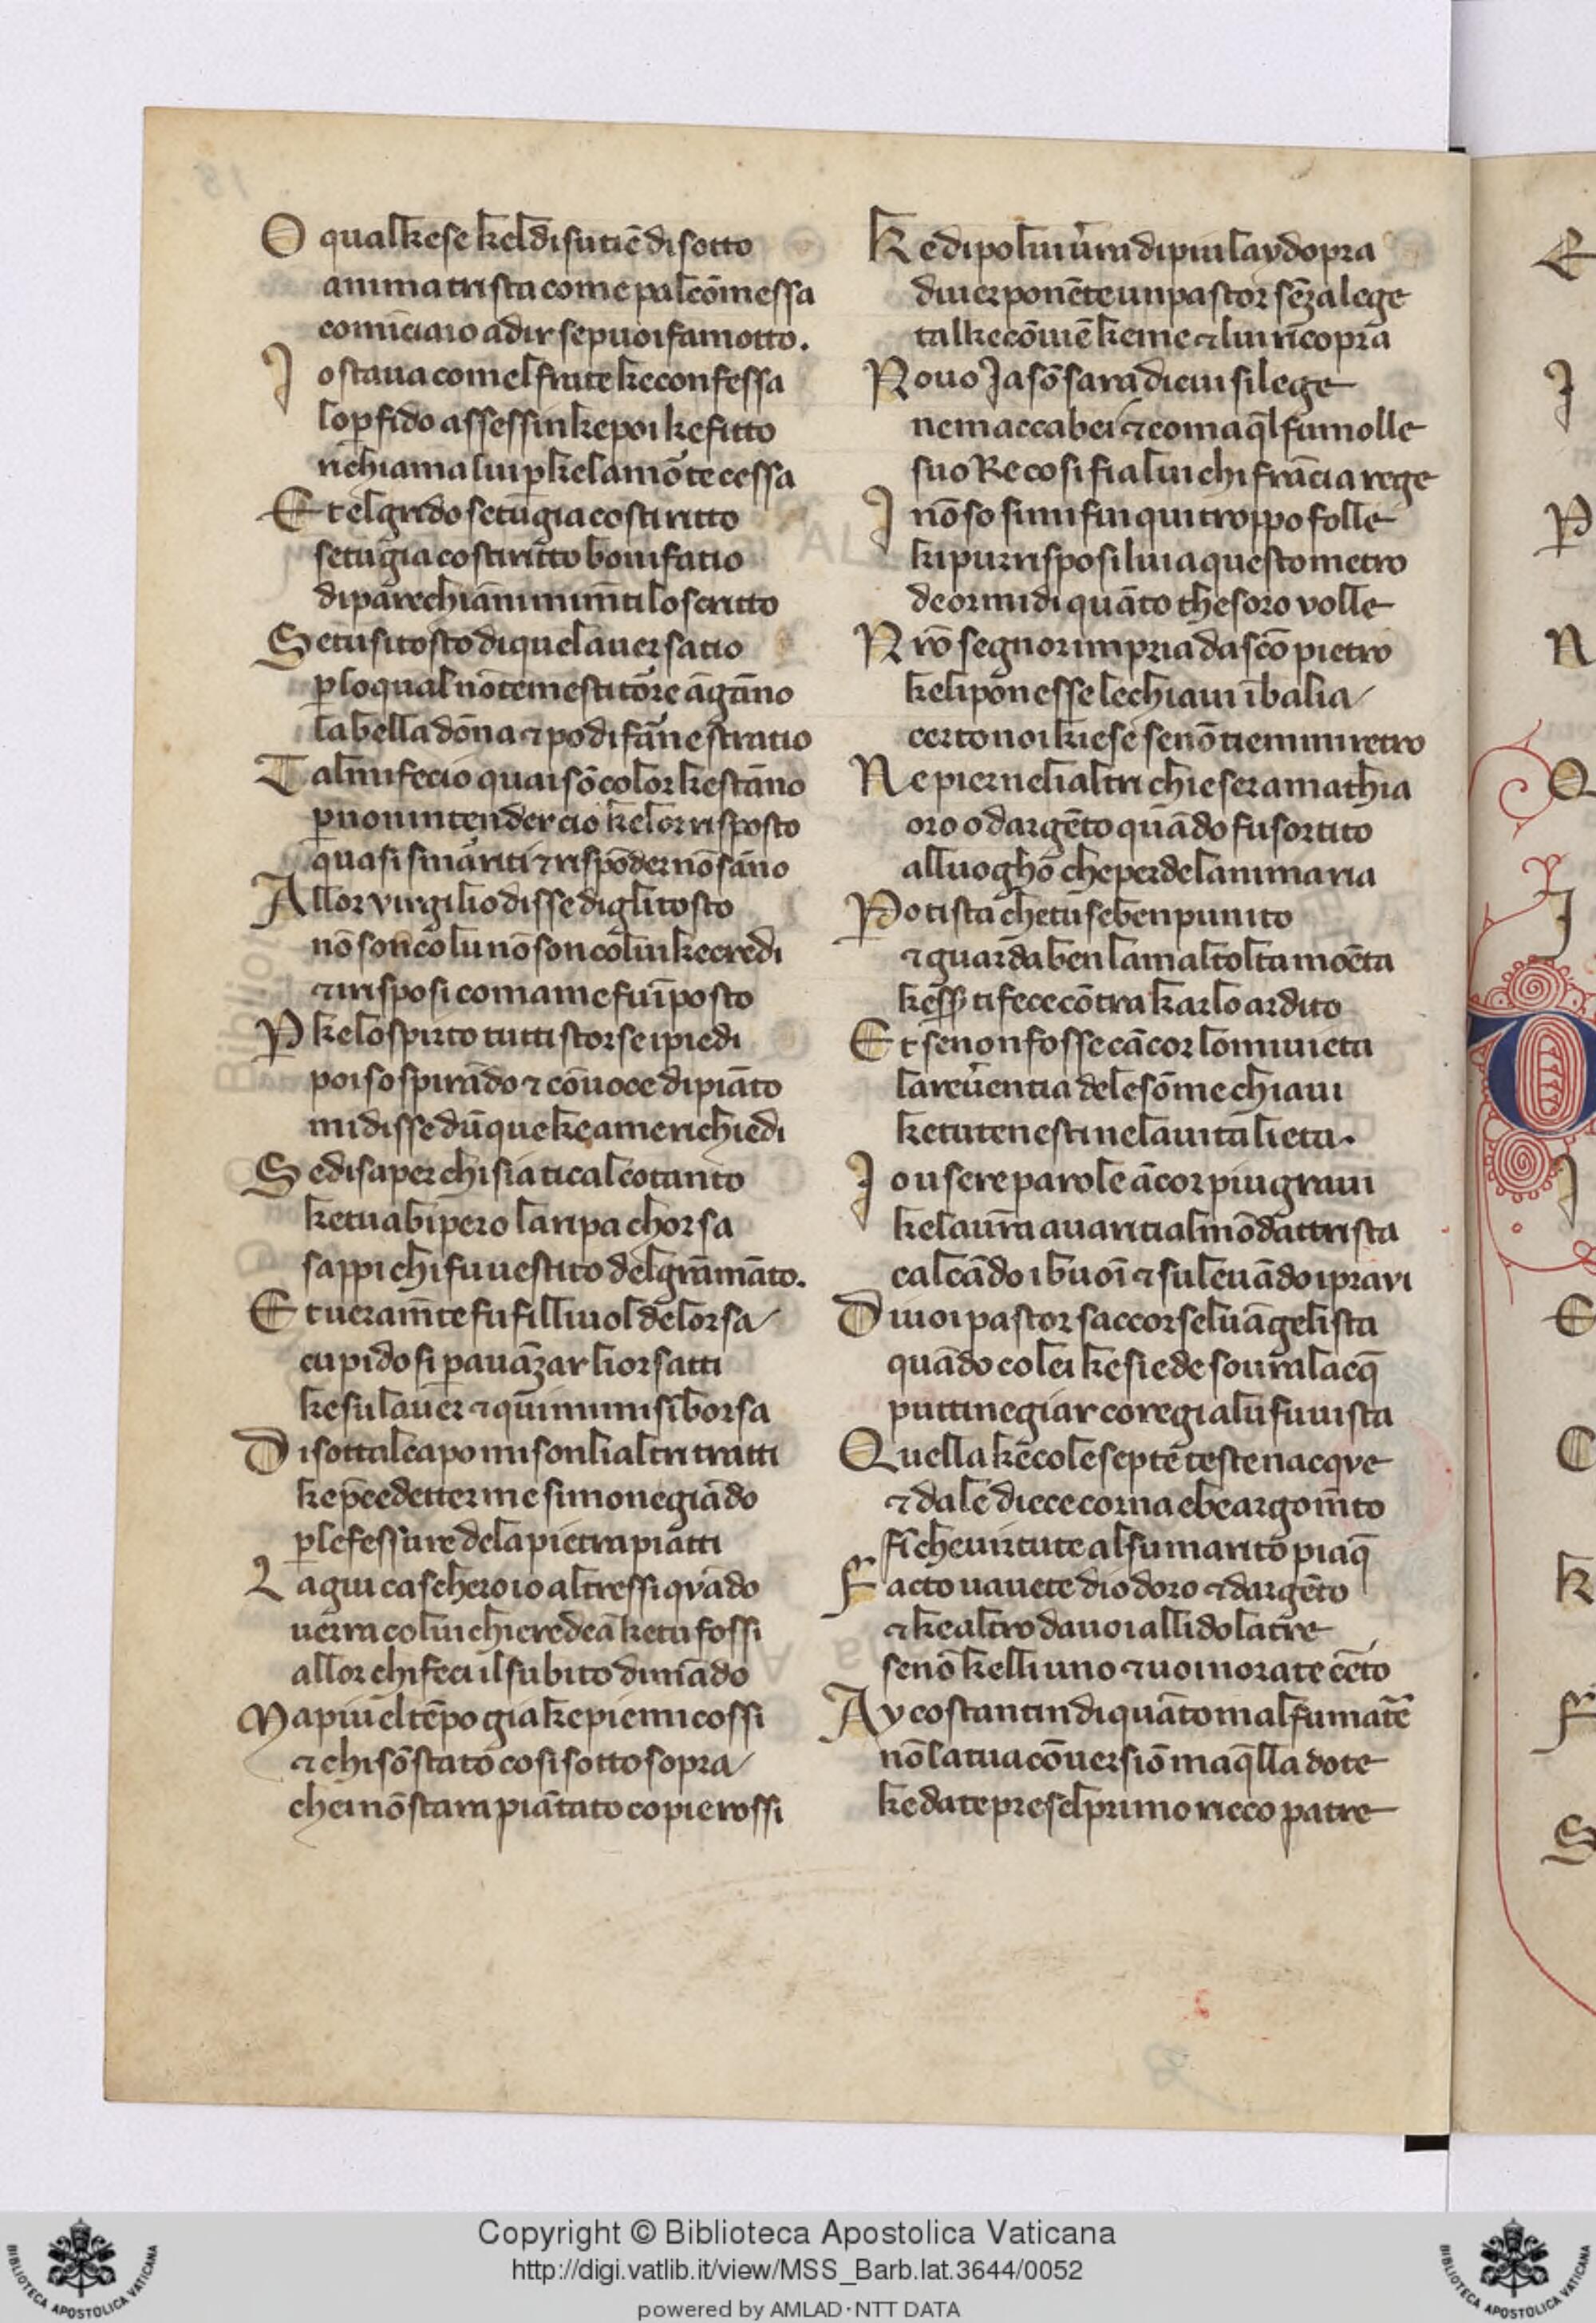 O qualkese keldisutiē disotto
anima trista come palcōmessa
comīciaio adir sepuoi famotto.
I o staua comel frate ke confessa
lo pfido assessin ke poi ke fitto
richiama lui pkelamōte cessa
Et el grido se tu gia costi ritto
se tu gia costi ritto bonifatio
di parechiāni mīmti lo scritto
Se tu si tosto di quelauer satio
plo qual nō temesti torre āgāno
la bella dōna ⁊ po di farne stratio
Tal mi fecio quai sō color ke stāno
p non intender cio ke lor risposto
quasi smariti ⁊ rispōder nō sāno
Allor virgilio disse digli tosto
nō son colu nō son colui ke credi
⁊ io risposi coma me fu īposto
P kelo spirto tutti storse i piedi
poi sospirādo ⁊ cō uoce di piāto
mi disse dūque ke a me richiedi
Se di saper chi sia ti cal cotanto
ke tu abi pero la ripa chorsa
sappi chi fu uestito del grāmāto.
Et ueramīte fu filliuol de lorsa
cupido si p auāzar li orsatti
ke su lauer ⁊ qui mi misi borsa
Di sottal capo mi son li altri tratti
ke pcedetter me simonegiādo
p le fessure de la pietra piatti
La giu cascheroio altressi qvādo
uerra colui chi credea ke tu fossi
allor chi feci il subito dimādo
Ma piu el tēpo gia ke pie mi cossi
⁊ chi sō stato cosi sotto sopra
che i nō stara piātato co pie rossi
Ke di po lui ūra di piu layd opra
diuer ponēte un pastor sēza lege
tal ke cōuiē ke me ⁊ lui ricopra
Nouo Jasō sara di cui si lege
ne maccabei ⁊ coma ql fu molle
suo Re cosi fia lui chi frācia rege
I nō so si mi fui qui troppo folle
ki pur risposi lui a questo metro
de or mi di quāto thesoro volle
Nrō segnor impria da scō pietro
ke li ponesse le chiaui ī balia
certo noi kiese se nō tiemmi retro
Ne pier ne li altri chiesera mathia
oro o dargēto quādo fu sortito
al luogho che perde lanima ria
Po ti sta che tu se ben punito
⁊ guarda ben la mal tolta moēta
kess ti fece cōtra karlo ardito
Et se non fosse cācor lo mi uieta
la reuentia de le sōme chiaui
ke tu tenesti ne la uita lieta.
Io usere parole ācor piu graui
ke la ura auaritia il mōdattrista
calcādo i buoi ⁊ suleuādo i pravi
Di uoi pastor saccorse luāgelista
quādo colei ke siede soura lacq
puttinegiar co regi a lui fu uista
Quella kē cole septē teste nacqve
⁊ da le diece corna ebe argomīto
fī che uirtute al su marito piaq
Facto uauete dio doro ⁊ dargēto
⁊ ke altro da uoi alli dolatre
se nō kelli uno ⁊ uoi norate cēto
Ay costantin di quāto mal fu matre
nō la tua cōuersiō ma qlla dote
ke da te presel primo ricco patre
Copyright © Biblioteca Apostolica Vaticana
http://digi.vatlib.it/view/MSS_Barb.lat.3644/0052
powered by AMLAD·NTT DATA